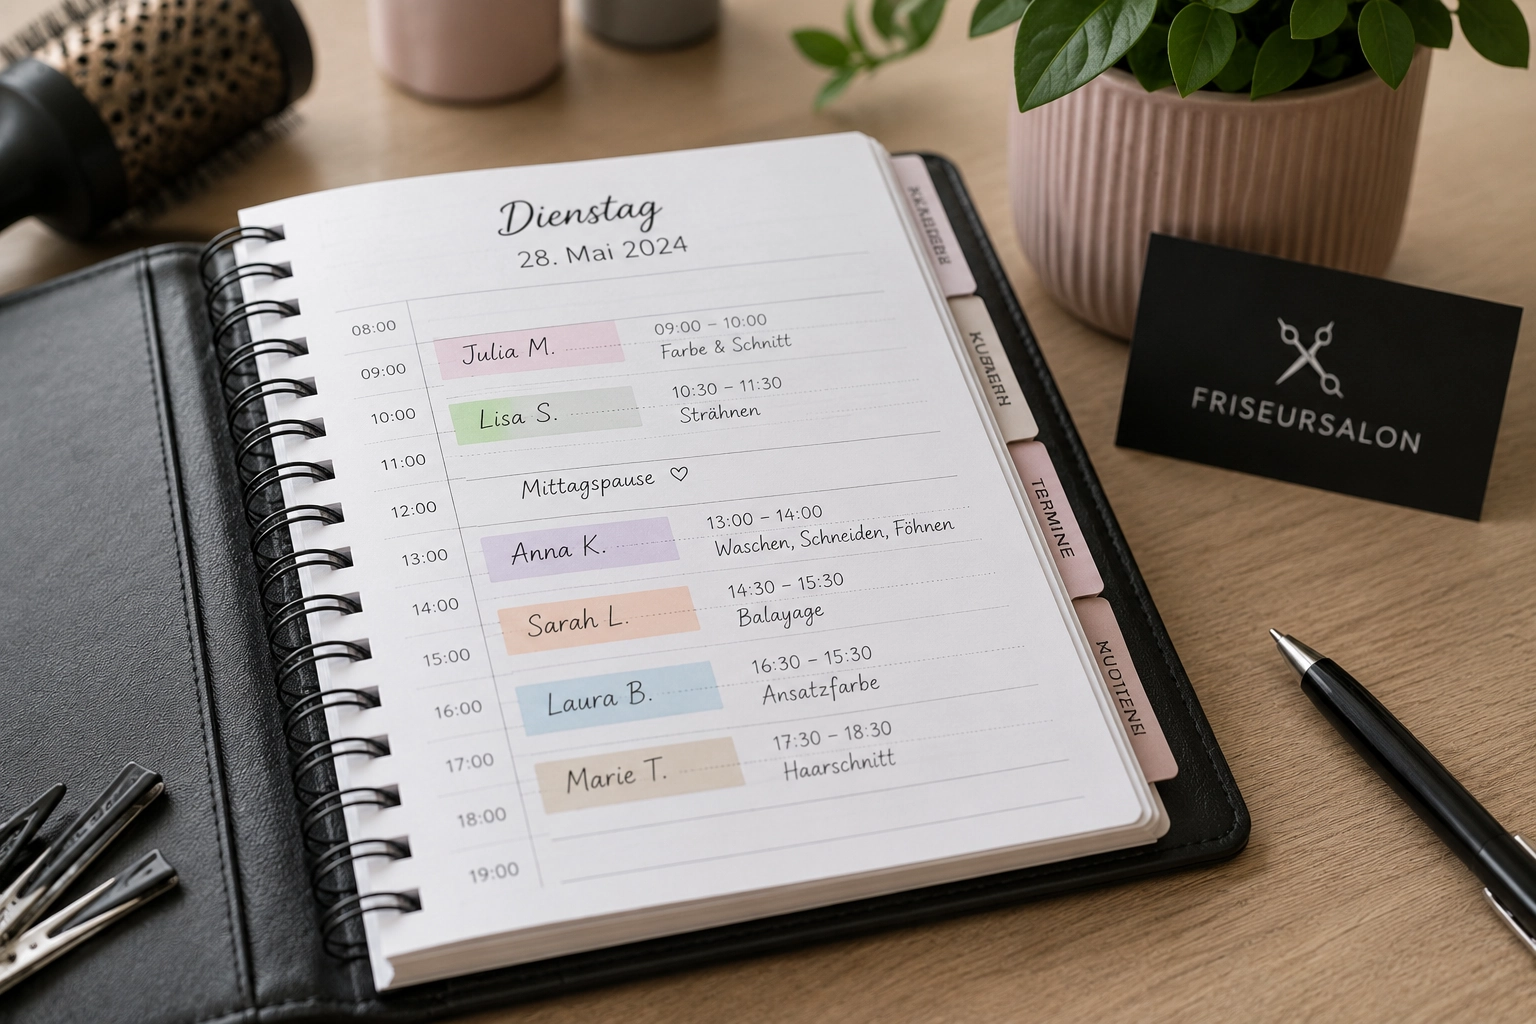 Dienstag
28. Mai 2024
08:00
09:00
10:00
11:00
12:00
13:00
14:00
15:00
16:00
17:00
18:00
19:00
Julia M.
09:00 – 10:00
Farbe & Schnitt
Lisa S.
10:30 – 11:30
Strähnen
Mittagspause ♡
Anna K.
13:00 – 14:00
Waschen, Schneiden, Föhnen
Sarah L.
14:30 – 15:30
Balayage
Laura B.
16:30 – 15:30
Ansatzfarbe
Marie T.
17:30 – 18:30
Haarschnitt
TERMINE
FRISEURSALON